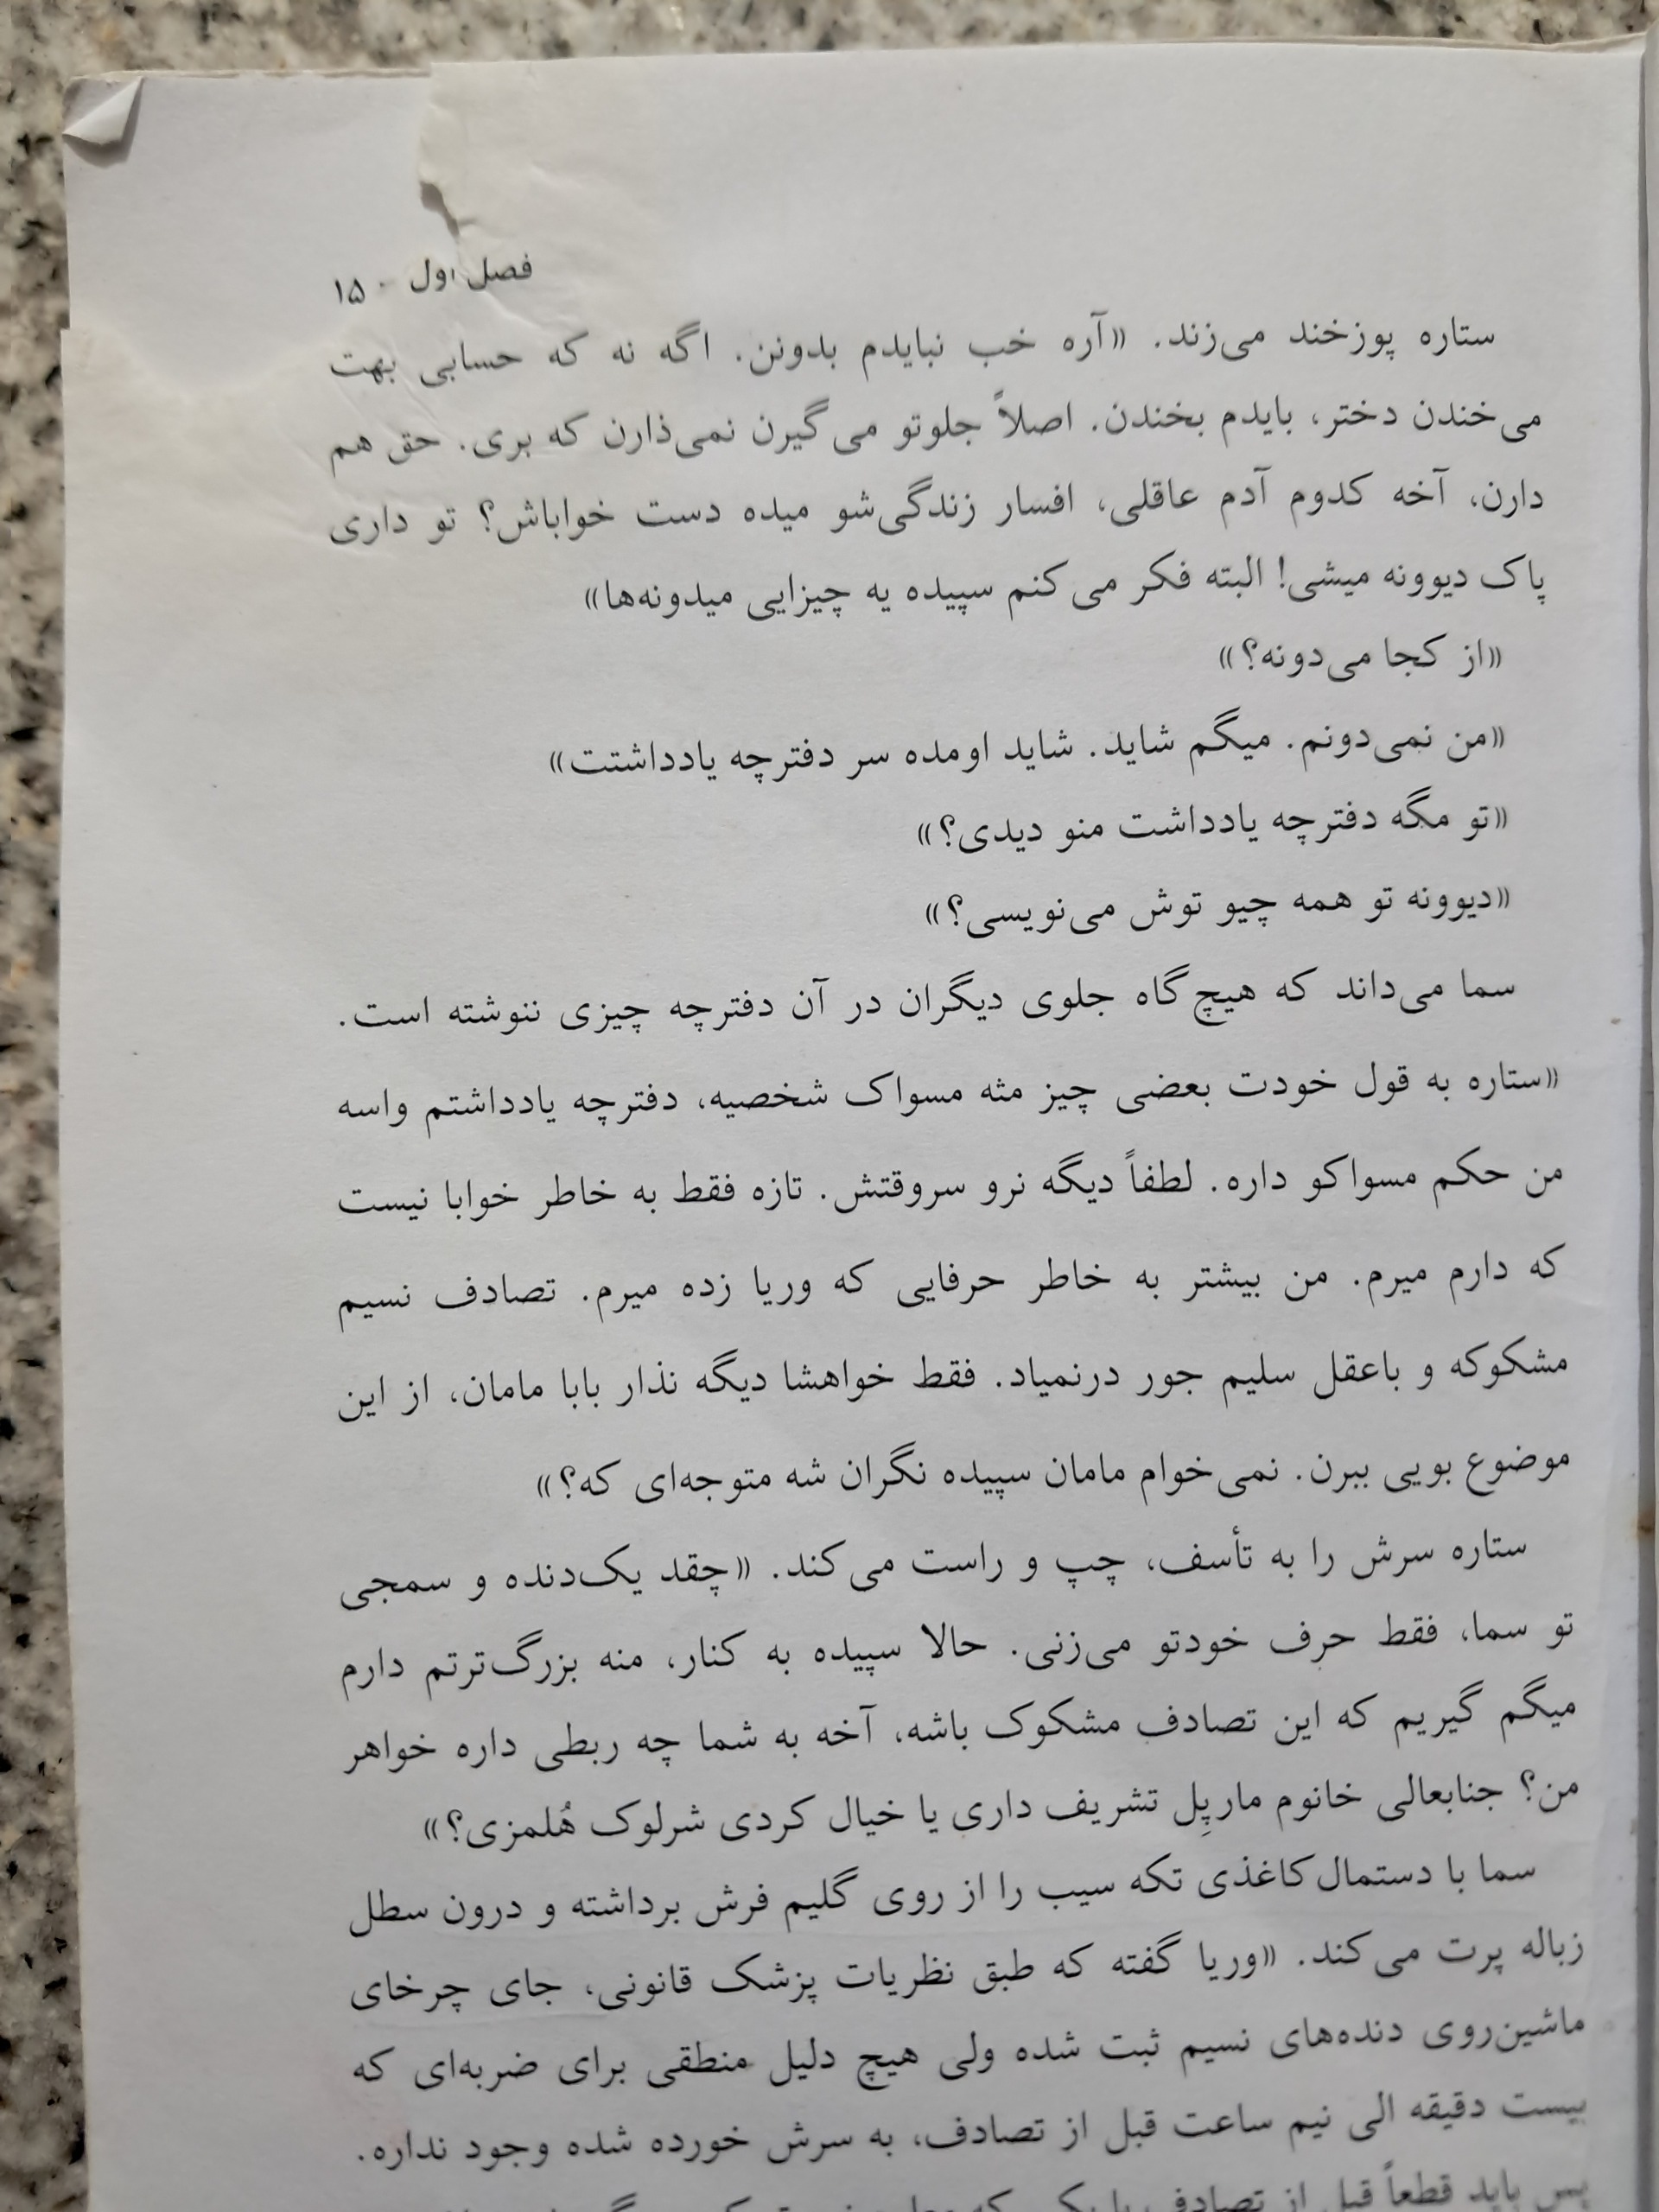 فصل اول ۱۵
ستاره پوزخند می‌زند. «آره خب نبایدم بدونن. اگه نه که حسابی بهت
می‌خندن دختر، بایدم بخندن. اصلاً جلوتو می‌گیرن نمی‌ذارن که بری. حق هم
دارن، آخه کدوم آدم عاقلی، افسار زندگی‌شو میده دست خواباش؟ تو داری
پاک دیوونه میشی! البته فکر می‌کنم سپیده یه چیزایی میدونه‌ها»
«از کجا می‌دونه؟»
«من نمی‌دونم. میگم شاید. شاید اومده سر دفترچه یادداشتت»
«تو مگه دفترچه یادداشت منو دیدی؟»
«دیوونه تو همه چیو توش می‌نویسی؟»
سما می‌داند که هیچ‌گاه جلوی دیگران در آن دفترچه چیزی ننوشته است.
«ستاره به قول خودت بعضی چیز مثه مسواک شخصیه، دفترچه یادداشتم واسه
من حکم مسواکو داره. لطفاً دیگه نرو سروقتش. تازه فقط به خاطر خوابا نیست
که دارم میرم. من بیشتر به خاطر حرفایی که وریا زده میرم. تصادف نسیم
مشکوکه و باعقل سلیم جور درنمیاد. فقط خواهشا دیگه نذار بابا مامان، از این
موضوع بویی ببرن. نمی‌خوام مامان سپیده نگران شه متوجه‌ای که؟»
ستاره سرش را به تأسف، چپ و راست می‌کند. «چقد یک‌دنده و سمجی
تو سما، فقط حرف خودتو می‌زنی. حالا سپیده به کنار، منه بزرگ‌ترتم دارم
میگم گیریم که این تصادف مشکوک باشه، آخه به شما چه ربطی داره خواهر
من؟ جنابعالی خانوم مارپِل تشریف داری یا خیال کردی شرلوک هُلمزی؟»
سما با دستمال‌کاغذی تکه سیب را از روی گلیم فرش برداشته و درون سطل
زباله پرت می‌کند. «وریا گفته که طبق نظریات پزشک قانونی، جای چرخای
ماشین‌روی دنده‌های نسیم ثبت شده ولی هیچ دلیل منطقی برای ضربه‌ای که
بیست دقیقه الی نیم ساعت قبل از تصادف، به سرش خورده شده وجود نداره.
پس باید قطعاً قبل از تصادف با یکی که